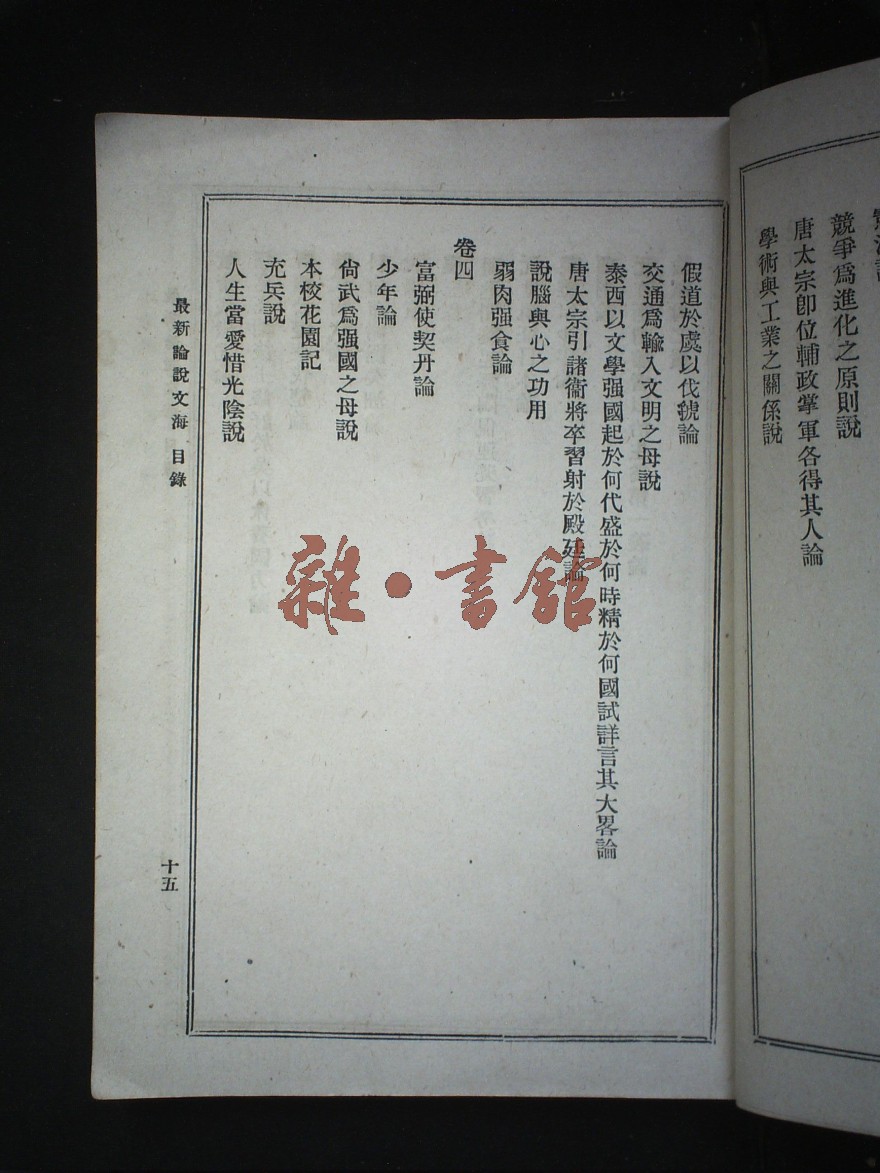 競爭爲進化之原則說
唐太宗卽位輔政掌軍各得其人論
學術與工業之關係說
假道於虞以伐虢論
交通爲輸入文明之母說
泰西以文學强國起於何代盛於何時精於何國試詳言其大畧論
唐太宗引諸衞將卒習射於殿廷論
說腦與心之功用
弱肉强食論
卷四
富弼使契丹論
少年論
尙武爲强國之母說
本校花園記
充兵說
人生當愛惜光陰說
最新論說文海 目錄
十五
雜·書館